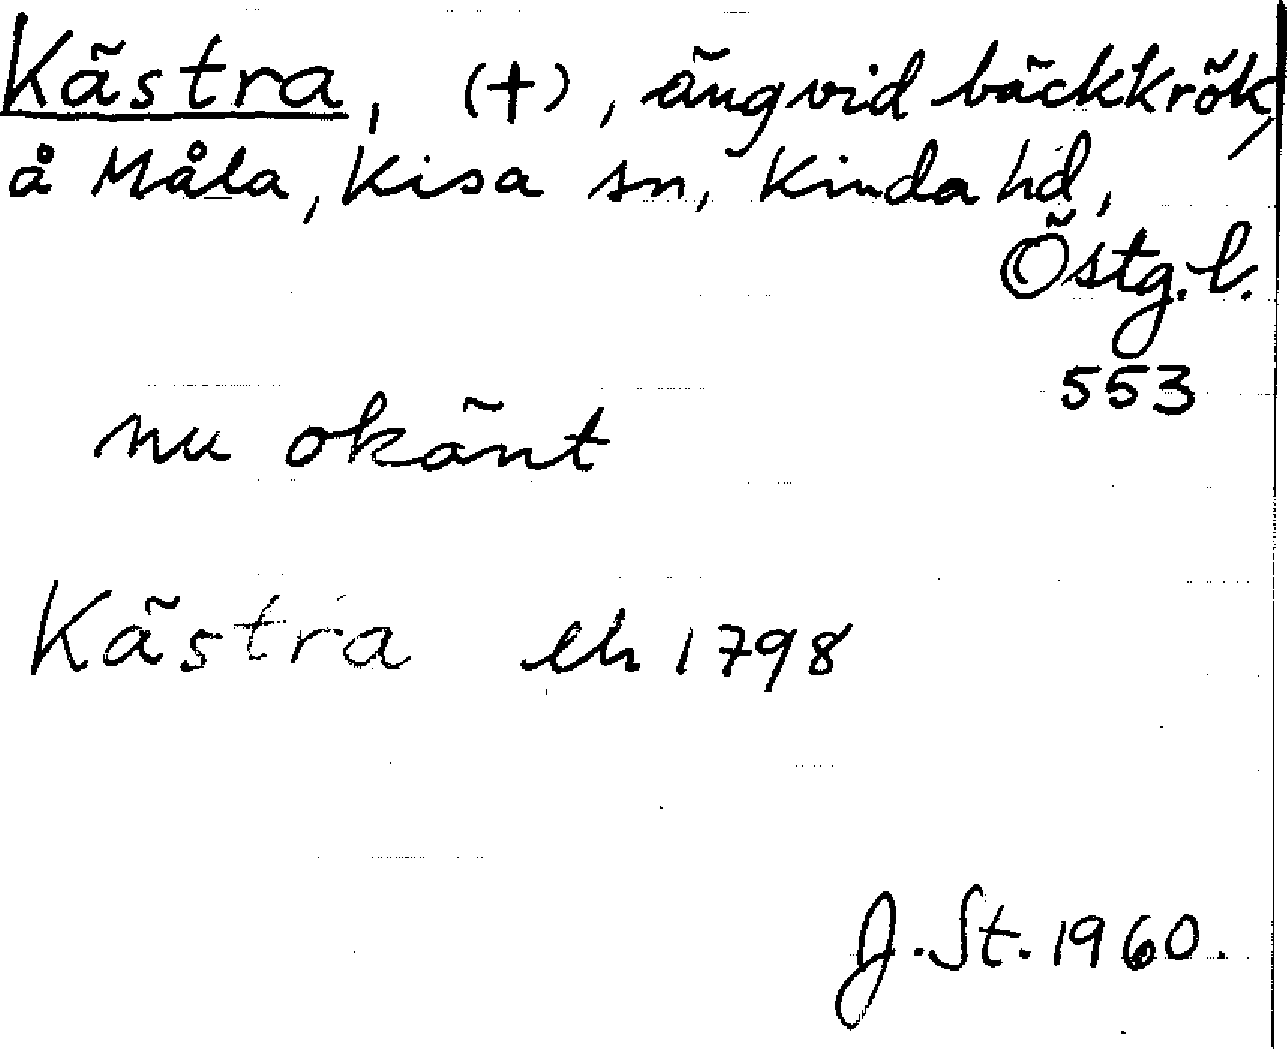 Kästra, (+), äng vid bäckkrök,
å Måla, Kisa sn, Kinda hd,
Östg.l.
553
nu okänt
Kästra eh 1798
J. St. 1960.